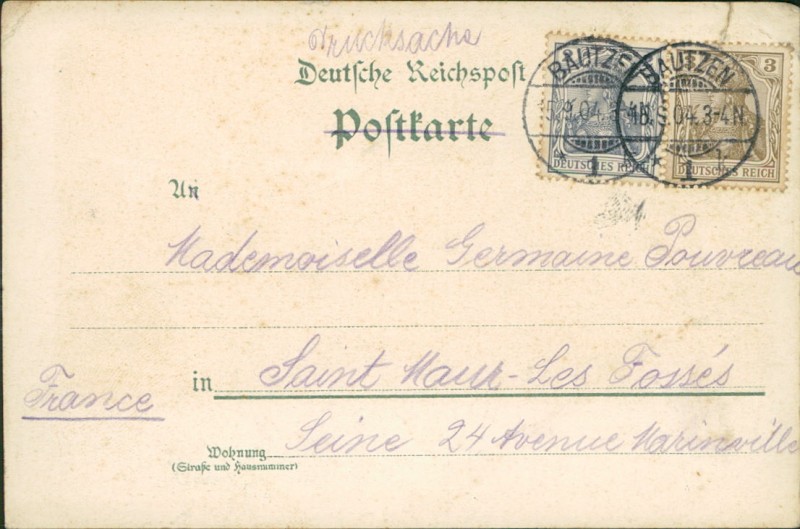 Drucksache
Deutsche Reichspost
Postkarte
BAUTZEN
.9.04.3-4N.
1
DEUTSCHES REICH
BAUTZEN
.9.04.3-4N.
1
3
DEUTSCHES REICH
An
Mademoiselle Germaine Pouvreau
in Saint Maur-Les Fossés
France
Seine 24 Avenue Marinville
Wohnung
(Straße und Hausnummer)